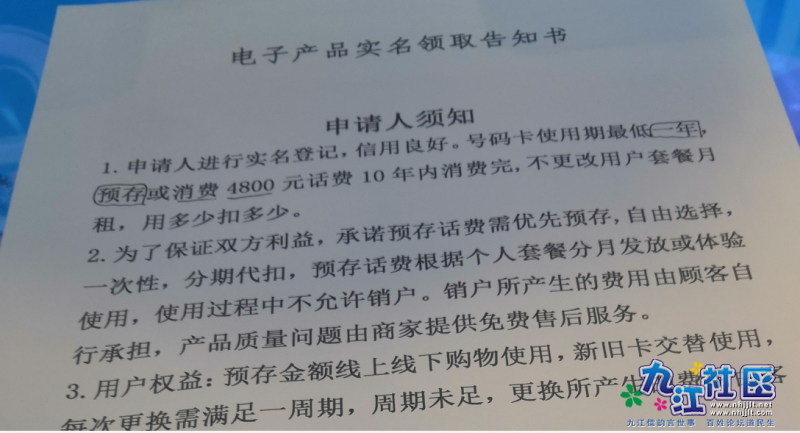 电子产品实名领取告知书
申请人须知
1. 申请人进行实名登记，信用良好。号码卡使用期最低一年，
预存或消费 4800 元话费 10 年内消费完，不更改用户套餐月
租，用多少扣多少。
2. 为了保证双方利益，承诺预存话费需优先预存，自由选择，
一次性，分期代扣，预存话费根据个人套餐分月发放或体验
使用，使用过程中不允许销户。销户所产生的费用由顾客自
行承担，产品质量问题由商家提供免费售后服务。
3. 用户权益：预存金额线上线下购物使用，新旧卡交替使用，
每次更换需满足一周期，周期未足，更换所产生
九江社区
www.nhjjlt.net
www.nhjjlt.com
九江信韵言世事 百姓论坛道民生